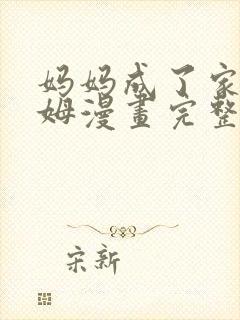 妈妈成了家
姆漫畫完整
宋新